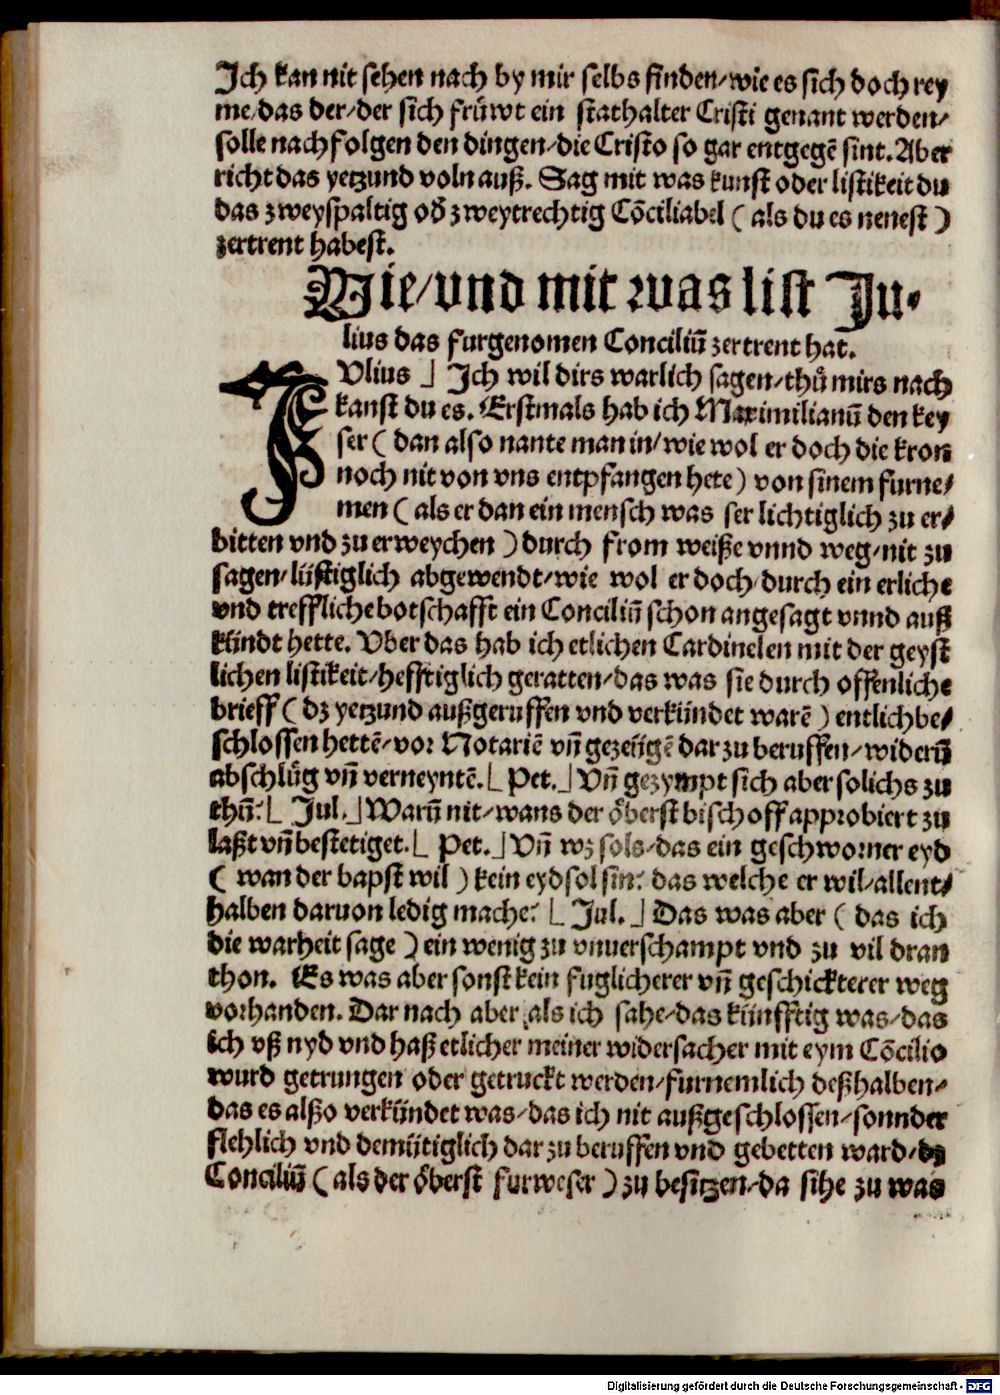 Ich kan nit sehen nach by mir selbs finden/wie es sich doch rey
me/das der/der sich fruͤwt ein stathalter Cristi genant werden/
solle nachfolgen den dingen/die Cristo so gar entgegē sint. Aber
richt das yetzund voln auß. Sag mit was kunst oder listikeit du
das zweyspaltig od̄ zweytrechtig Cōciliabel ( als du es nenest )
zertrent habest.
Wie/vnd mit was list Ju⸗
lius das furgenomen Conciliū zertrent hat.
JVlius ⅃ Ich wil dirs warlich sagen/thuͦ mirs nach
kanst du es. Erstmals hab ich Maximilianū den key
ser ( dan also nante man in/wie wol er doch die kron
noch nit von vns entpfangen hete ) von sinem furne/
men ( als er dan ein mensch was ser lichtiglich zu er/
bitten vnd zu erweychen ) durch from weiße vnnd weg/nit zu
sagen/lüstiglich abgewendt/wie wol er doch/durch ein erliche
vnd treffliche botschafft ein Conciliū schon angesagt vnnd auß
kündt hette. Vber das hab ich etlichen Cardinelen mit der geyst
lichen listikeit/hefftiglich geratten/das was sie durch offenliche
brieff ( dz yetzund außgeruffen vnd verkündet warē ) entlich be/
schlossen hettē/vor Notariē vn̄ gezeügē dar zu beruffen/widerū
abschluͤg vn̄ verneyntē. ⌊ Pet. ⅃ Vn̄ gezympt sich aber solichs zu
thuͦ̄: ⌊ Jul. ⅃ Warū nit/wans der oͤberst bischoff approbiert zu
laßt vn̄ bestetiget. ⌊ Pet. ⅃ Vn̄ wz sols/das ein geschworner eyd
( wan der bapst wil ) kein eyd sol sin: das welche er wil/allent/
halben daruon ledig mache: ⌊ Jul. ⅃ Das was aber ( das ich
die warheit sage ) ein wenig zu vnuerschampt vnd zu vil dran
thon. Es was aber sonst kein fuglicherer vn̄ geschickterer weg
vorhanden. Dar nach aber als ich sahe/das künfftig was/das
ich vß nyd vnd haß etlicher meiner widersacher mit eym Cōcilio
wurd getrungen oder getruckt werden/furnemlich deßhalben/
das es alßo verkündet was/das ich nit außgeschlossen/sonnder
flehlich vnd demütiglich dar zu beruffen vnd gebetten ward/dz
Conciliū ( als der oͤberst furweser ) zu besitzen/da sihe zu was
Digitalisierung gefördert durch die Deutsche Forschungsgemeinschaft - DFG